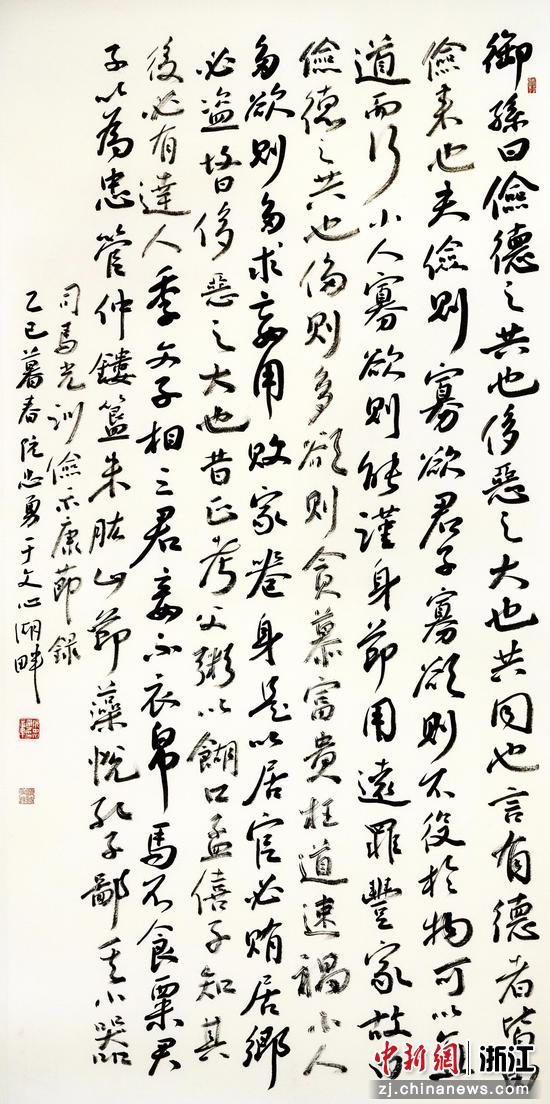 御孫曰儉德之共也侈惡之大也共同也言有德者皆由
儉来也夫儉則寡欲君子寡欲則不役於物可以直
道而行小人寡欲則能謹身節用遠罪豐家故曰
儉德之共也侈則多欲則貪慕富貴枉道速禍小人
多欲則多求妄用敗家喪身是以居官必賄居鄉
必盗故曰侈惡之大也昔正考父粥以餬口孟僖子知其
後必有達人季文子相三君妾不衣帛馬不食粟君
子以為忠管仲鏤簋朱肱山節藻悦孔子鄙其小器
司馬光訓儉示康節錄
乙巳暮春阮忠勇于文心湖畔
中新網 浙江
zj.chinanews.com